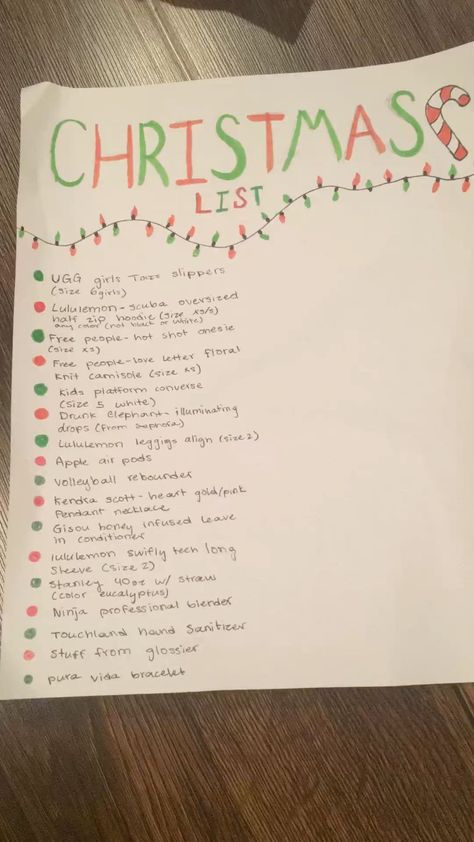 CHRISTMAS
LIST
UGG girls Tazz slippers
(size 6girls)
Lululemon-scuba oversized
half zip hoodie (size xs/s)
any color (not black or white)
Free people-hot shot onesie
(size xs)
Free people-love letter floral
Knit camisole (size xs)
Kids platform converse
(size 5 white)
Drunk Elephant-illuminating
drops (from sephora)
Lululemon leggigs align (size 2)
Apple air pods
Volleyball rebounder
Kendra scott-heart gold/pink
Pendant necklace
Gisou honey infused leave
in conditioner
lululemon swifly tech long
Sleeve (size 2)
Stanley 40oz w/ straw
(color eucalyptus)
Ninja professional blender
Touchland hand Sanitizer
Stuff from glossier
pura vida bracelet